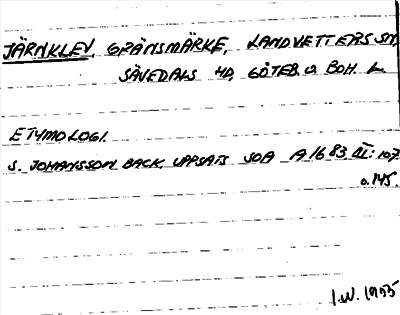 JÄRNKLEV, GRÄNSMÄRKE, LANDVETTERS SN,
SÄVEDALS HD, GÖTEB. O. BOH. L.
ETYMOLOGI.
S. JOHANSSON BACK, UPPSATS SOA A 1683 III: 107
o. 145.
I.W. 1955